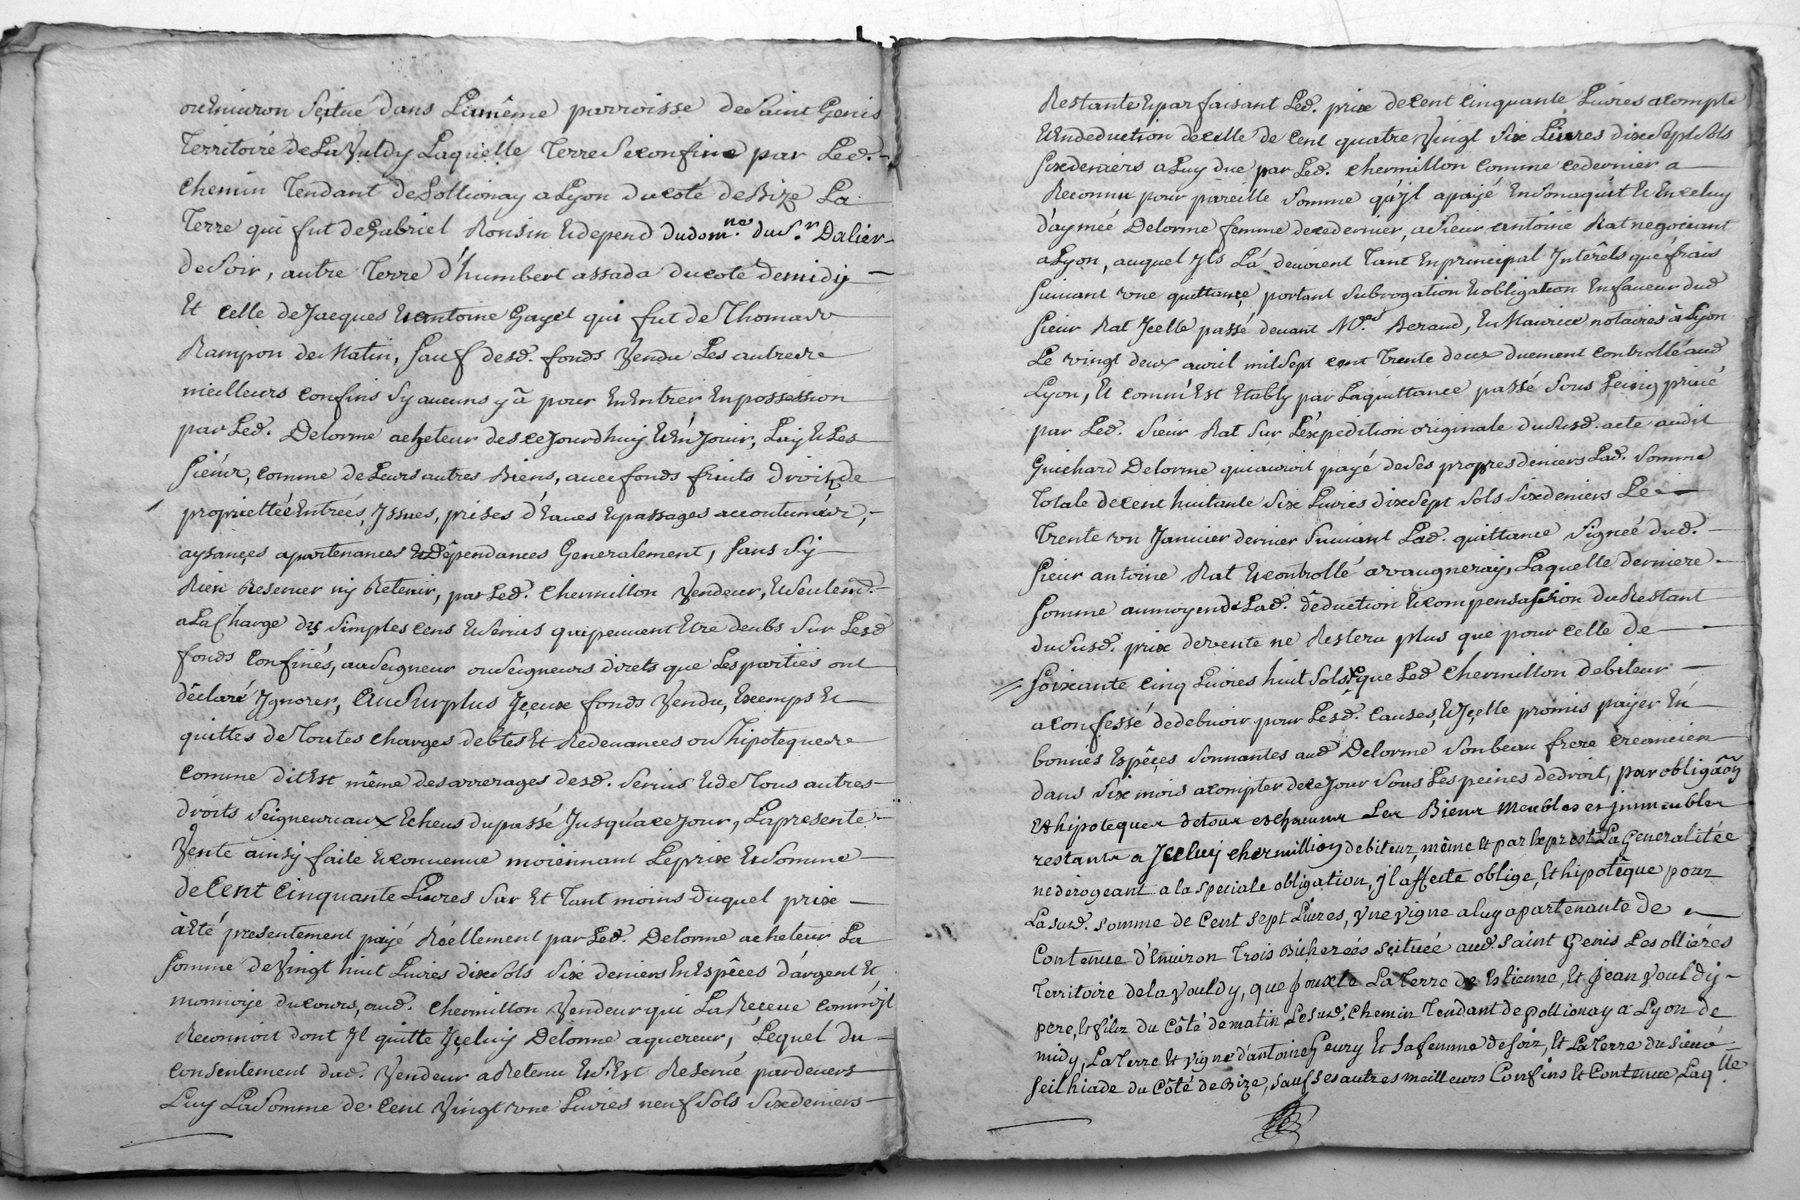 ou Environ Scitué dans La même parroisse de Saint Genis
Territoire de La Vuldy Laquelle Terre Se confine par Led.
chemin Tendant de Pollionay a Lyon du coté de Bize La
Terre qui fut de Gabriel Ronsin Et depend du dom.ne du S.r Dalier
de Soir, autre Terre d'humbert assada du coté de midy
Et celle de Jacques Et antoine Gayet qui fut de Thomas
Rampon de Matin, Sauf desd. fonds Vendu Les autres
meilleurs confins Sy aucuns y â pour En Entrer En possession
par Led. Delorme acheteur des ce Jourdhuy Et En Jouir, Luy Et Les
Siens, comme de Leurs autres Biens, avec fonds fruits droits de
propriettée Entrées, Issues, prises d'Eaues Et passages accoutumés,
aysances apartenances Et Dépendances Generalement, Sans Sy
Rien Reserver ny Retenir, par Led. Chermillon Vendeur, Et Seulem.t
a La Charge des Simples cens Et Servis qui peuvent Etre deubs Sur Lesd
fonds Confinés, au Seigneur ou Seigneurs direts que Les parties ont
déclaré Ignorer, Au Surplus Iceux fonds Vendu, Exemps Et
quittes de Toutes charges debtes Et Redevances ou hipoteques
comme dit Est même des arrerages desd. Servis Et de Tous autres
droits Seigneuriaux Echeus du passé Jusqu'a ce Jour, La presente
Vente ainsy faite Et convenue moiennant Le prix Et Somme
de Cent Cinquante Livres Sur Et Tant moins duquel prix
â Eté presentement payé Réellement par Led. Delorme acheteur La
Somme de Vingt huit Livres dix Sols Six deniers En Espêces d'argent Et
monnoye du cours, aud. Chermillon Vendeur qui La Receue comm'jl
Reconnoit dont Il quitte Içeluy Delorme aquereur, Lequel du
consentement dud. Vendeur a Retenu Et S'Est Reservé pardevers
Luy La Somme de Cent Vingt une Livres neuf Sols Six deniers
Restante Et par faisant Led. prix de Cent Cinquante Livres a compte
Et En deduction de celle de Cent quatre Vingt Six Livres dix Sept Sols
Six deniers a Luy due par Led. Chermillon Comme ce dernier a
Reconnu pour pareille Somme qu'jl a payé En Son aquit Et En celuy
d'aymée Delorme femme de ce dernier, a Sieur antoine Rat negociant
a Lyon, auquel jls La devoient Tant En principal Intérêts que frais
Suivant une quittance portant Subrogation Et obligation En faveur dud
Sieur Rat Icelle passé devant M.es Beraud, Et Maurice notaires à Lyon
Le vingt deux avril mil Sept cent Trente deux duement controllé aud
Lyon, Et comm'Est Etably par La quittance passé Sous Seing privé
par Led. Sieur Rat Sur L'expedition originale du Susd. acte audit
Guichard Delorme qui auroit payé de Ses propres deniers Lad. Somme
Totale de cent huitante Six Livres dix Sept Sols Six deniers Le
Trente un Janvier dernier Suivant Lad. quittance Signeé dud.
Sieur antoine Rat Et controllé a vaugneray, Laquelle derniere
Somme au moyen de Lad. déduction Et compensassion du Restant
du Susd. prix de vente ne Restera plus que pour celle de
Soixante Cinq Livres huit Sols, que Led Chermillon debiteur
a confessé de debvoir pour Lesd. causes, Et Içelle promis payer En
bonnes Espêçes Sonnantes aud Delorme Son beau frere creancier
dans Six mois a compter de ce Jour Sous Les peines de droit, par obligãõn
Et hipoteques de tous et chacuns Les Biens meubles et jmmeubles
restants a Jceluy chermillion debiteur, même Et par Exprest La Generalitée
ne derogeant a la speciale obligation, jl affecte oblige, Et hipotêque pour
La sud. somme de Cent sept Livres, Vne vigne a luy apartenante de
Contenue d'Environ Trois Bicherées scituée aud. saint Genis Les ollieres
Territoire de la Vouldy, que jouxte La Terre de Estienne, Et Jean Vouldy
pere, Et fils du côté de matin Lesud. chemin Tendant de pollionay a Lyon de
midy, La Terre Et vigne d'antoine Geury Et sa femme de soir, Et La Terre du sieur
seilhiade du Côté de Bize, sauf ses autres meilleurs Confins Et Contenue Laq.lle